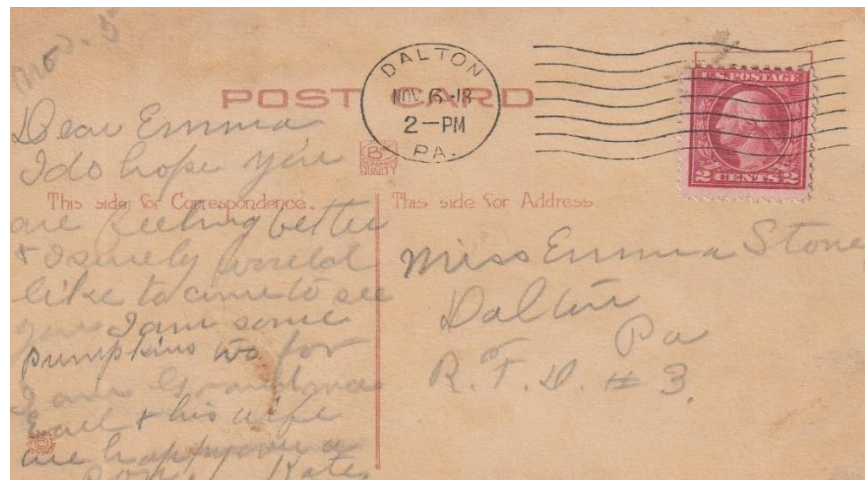 Nov. 5
DALTON
NOV 6-18
2-PM
PA.
POST CARD
U.S. POSTAGE
2 CENTS 2
Dear Emma
I do hope you
QUALITY
This side for Correspondence.
are feeling better
& I surely would
like to come to see
you I am some
pumpkins too for
I am Grandma
Earl & his wife
are happy over a
Boy. Kate
This side for Address.
Miss Emma Stone
Dalton
Pa
R.F.D. # 3.